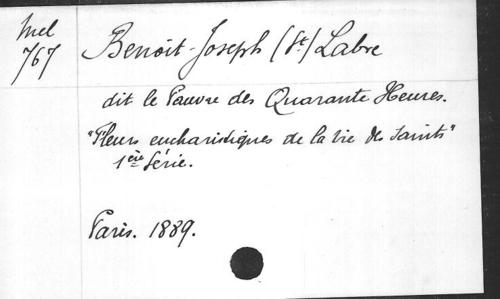 Mel
767
Benoit-Joseph (St) Labre
dit le Pauvre des Quarante Heures.
"Fleurs eucharistiques de la vie des Saints"
1ère Série.
Paris. 1889.